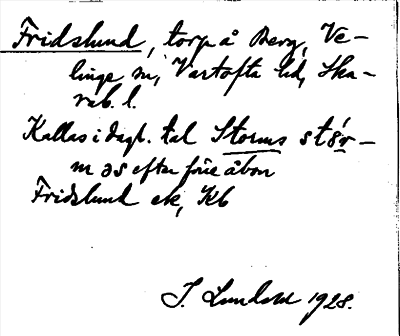 Fridslund, torp å Berg, Ve-
linge sn, Vartofta hd, Ska-
rab. l.
Kallas i dagl. tal Storms stǿr-
m əs efter förre åbon
Fridslund ek, Kb
J. Lundahl 1928.